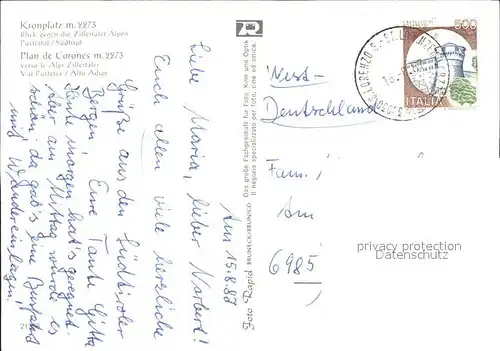 Kronplatz m. 2273
Blick gegen die Zillertaler Alpen
Pustertal / Südtirol
Plan de Corones m. 2273
verso le Alpi Zillertaler
Val Pusteria / Alto Adige
Am 15.8.87
Liebe Maria, lieber Norbert!
Euch allen viele herzliche
Grüße aus den Südtiroler
Bergen! Eure Tante Gitta
Heute morgen hat's geregnet
aber am Mittag wurde es
schön, da gab's eine Busfahrt
mit Wandereinlagen.
Foto Rapid BRUNECK/BRUNICO
Das große Fachgeschäft für Foto, Kino und Optik
Il negozio specializzato per foto, cine ed ottica.
500
ITALIA
West-
Deutschland
Fam.
Am
6985
privacy protection
Datenschutz